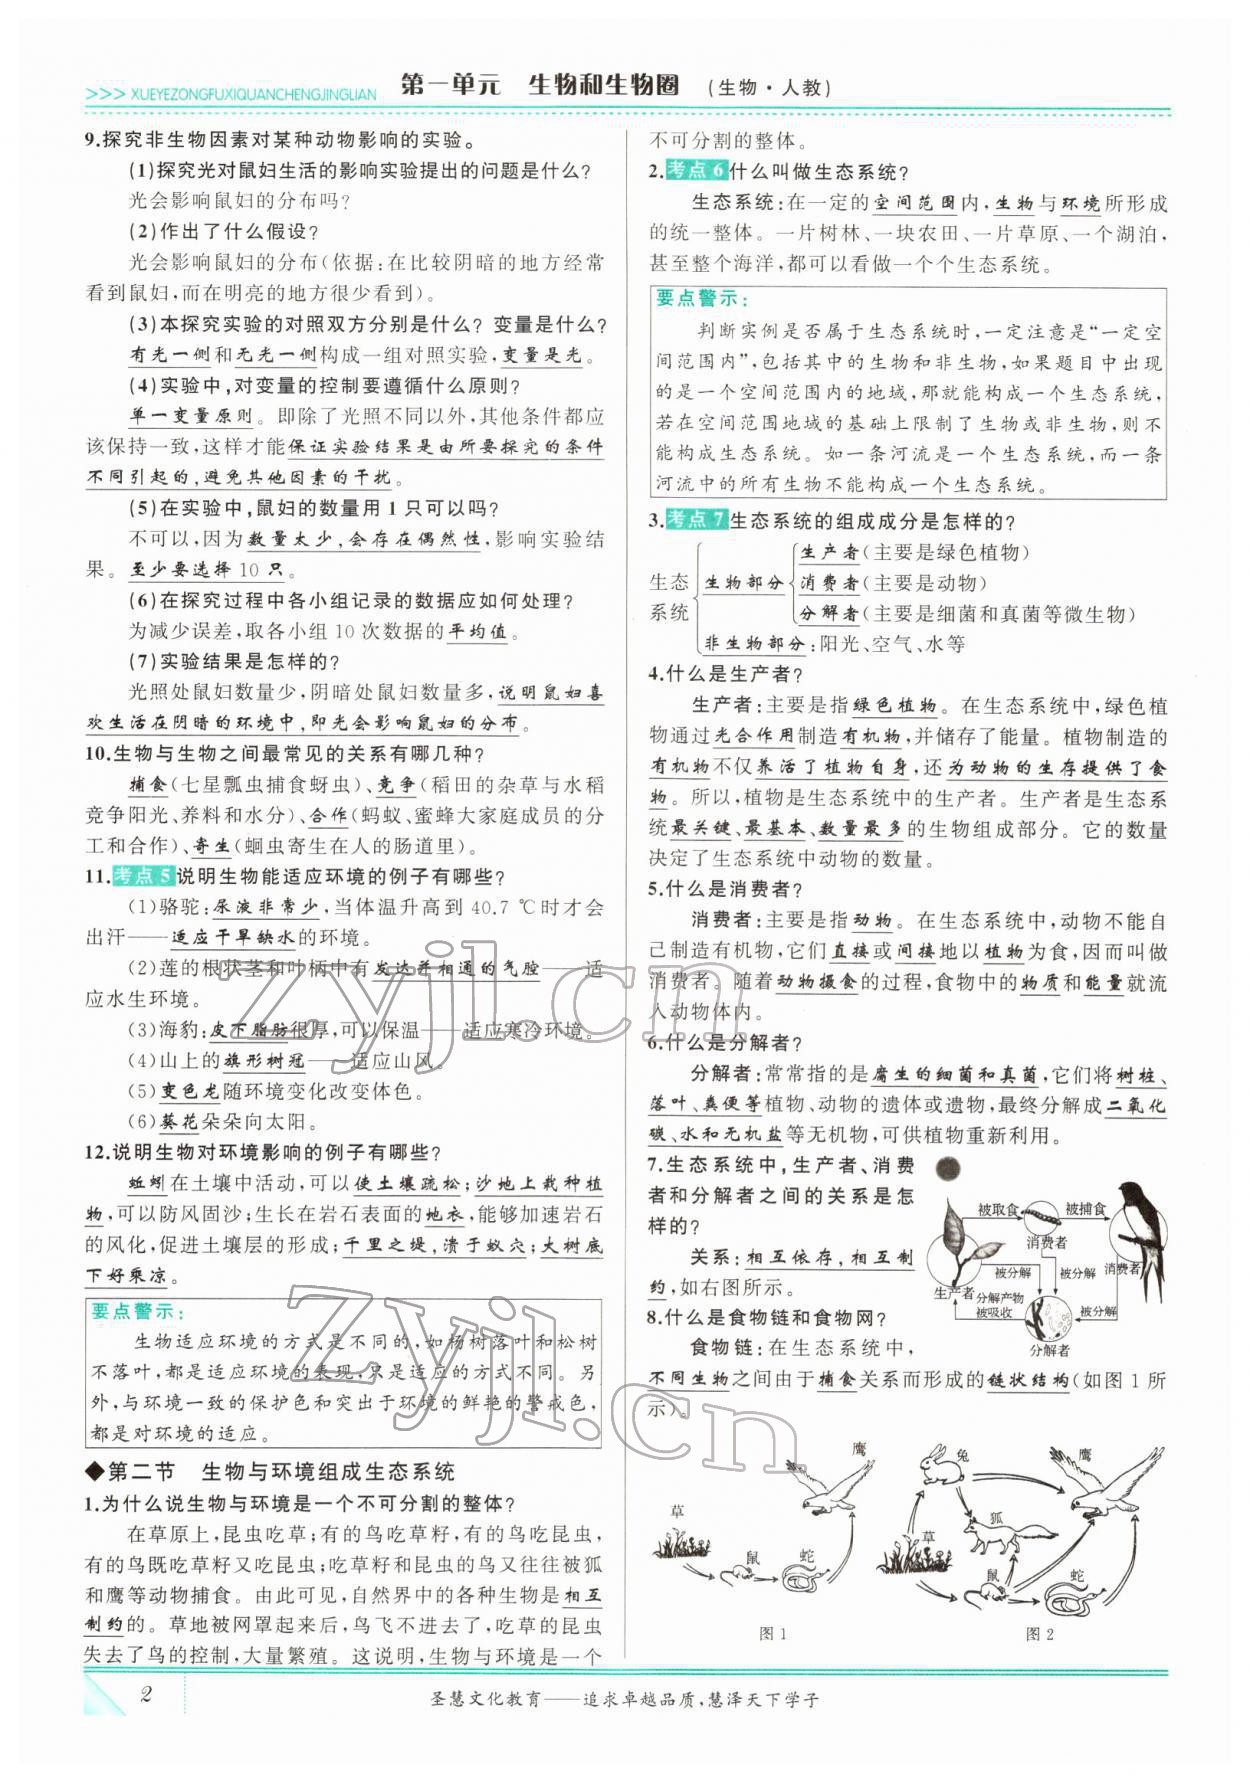 >>> XUEYEZONGFUXIQUANCHENGJINGLIAN 第一单元 生物和生物圈 (生物·人教)
9.探究非生物因素对某种动物影响的实验。
(1)探究光对鼠妇生活的影响实验提出的问题是什么?
光会影响鼠妇的分布吗?
(2)作出了什么假设?
光会影响鼠妇的分布(依据:在比较阴暗的地方经常
看到鼠妇,而在明亮的地方很少看到)。
(3)本探究实验的对照双方分别是什么? 变量是什么?
有光一侧和无光一侧构成一组对照实验,变量是光。
(4)实验中,对变量的控制要遵循什么原则?
单一变量原则。即除了光照不同以外,其他条件都应
该保持一致,这样才能保证实验结果是由所要探究的条件
不同引起的,避免其他因素的干扰。
(5)在实验中,鼠妇的数量用1只可以吗?
不可以,因为数量太少,会存在偶然性,影响实验结
果。至少要选择10只。
(6)在探究过程中各小组记录的数据应如何处理?
为减少误差,取各小组10次数据的平均值。
(7)实验结果是怎样的?
光照处鼠妇数量少,阴暗处鼠妇数量多,说明鼠妇喜
欢生活在阴暗的环境中,即光会影响鼠妇的分布。
10.生物与生物之间最常见的关系有哪几种?
捕食(七星瓢虫捕食蚜虫)、竞争(稻田的杂草与水稻
竞争阳光、养料和水分)、合作(蚂蚁、蜜蜂大家庭成员的分
工和合作)、寄生(蛔虫寄生在人的肠道里)。
11.考点5 说明生物能适应环境的例子有哪些?
(1)骆驼:尿液非常少,当体温升高到40.7 ℃时才会
出汗——适应干旱缺水的环境。
(2)莲的根状茎和叶柄中有发达并相通的气腔——适
应水生环境。
(3)海豹:皮下脂肪很厚,可以保温——适应寒冷环境。
(4)山上的旗形树冠——适应山风。
(5)变色龙随环境变化改变体色。
(6)葵花朵朵向太阳。
12.说明生物对环境影响的例子有哪些?
蚯蚓在土壤中活动,可以使土壤疏松;沙地上栽种植
物,可以防风固沙;生长在岩石表面的地衣,能够加速岩石
的风化,促进土壤层的形成;千里之堤,溃于蚁穴;大树底
下好乘凉。
要点警示:
生物适应环境的方式是不同的,如杨树落叶和松树
不落叶,都是适应环境的表现,只是适应的方式不同。另
外,与环境一致的保护色和突出于环境的鲜艳的警戒色,
都是对环境的适应。
◆第二节 生物与环境组成生态系统
1.为什么说生物与环境是一个不可分割的整体?
在草原上,昆虫吃草;有的鸟吃草籽,有的鸟吃昆虫,
有的鸟既吃草籽又吃昆虫;吃草籽和昆虫的鸟又往往被狐
和鹰等动物捕食。由此可见,自然界中的各种生物是相互
制约的。草地被网罩起来后,鸟飞不进去了,吃草的昆虫
失去了鸟的控制,大量繁殖。这说明,生物与环境是一个
不可分割的整体。
2.考点6 什么叫做生态系统?
生态系统:在一定的空间范围内,生物与环境所形成
的统一整体。一片树林、一块农田、一片草原、一个湖泊,
甚至整个海洋,都可以看做一个个生态系统。
要点警示:
判断实例是否属于生态系统时,一定注意是“一定空
间范围内”,包括其中的生物和非生物,如果题目中出现
的是一个空间范围内的地域,那就能构成一个生态系统,
若在空间范围地域的基础上限制了生物或非生物,则不
能构成生态系统。如一条河流是一个生态系统,而一条
河流中的所有生物不能构成一个生态系统。
3.考点7 生态系统的组成成分是怎样的?
生态系统
生物部分
生产者(主要是绿色植物)
消费者(主要是动物)
分解者(主要是细菌和真菌等微生物)
非生物部分:阳光、空气、水等
4.什么是生产者?
生产者:主要是指绿色植物。在生态系统中,绿色植
物通过光合作用制造有机物,并储存了能量。植物制造的
有机物不仅养活了植物自身,还为动物的生存提供了食
物。所以,植物是生态系统中的生产者。生产者是生态系
统最关键、最基本、数量最多的生物组成部分。它的数量
决定了生态系统中动物的数量。
5.什么是消费者?
消费者:主要是指动物。在生态系统中,动物不能自
己制造有机物,它们直接或间接地以植物为食,因而叫做
消费者。随着动物摄食的过程,食物中的物质和能量就流
入动物体内。
6.什么是分解者?
分解者:常常指的是腐生的细菌和真菌,它们将树桩、
落叶、粪便等植物、动物的遗体或遗物,最终分解成二氧化
碳、水和无机盐等无机物,可供植物重新利用。
7.生态系统中,生产者、消费
者和分解者之间的关系是怎
样的?
关系:相互依存,相互制
约,如右图所示。
被取食 被捕食
消费者
被分解 被分解 消费者
生产者 分解产物
被吸收 被分解
分解者
8.什么是食物链和食物网?
食物链:在生态系统中,
不同生物之间由于捕食关系而形成的链状结构(如图1所
示)。
鹰
草
鼠 蛇
图1
兔 鹰
狐
草
鼠 蛇
图2
2
圣慧文化教育——追求卓越品质,慧泽天下学子
zyjl.cn
zyjl.cn